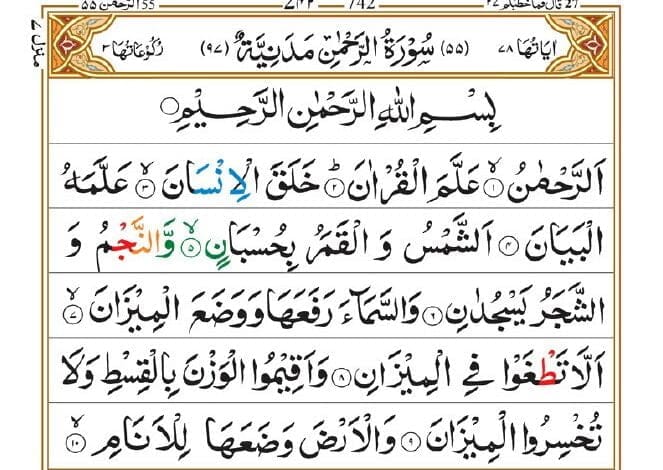 27 قال فما خطبكم ٢٧ 742 55 الرحمن ۵۵
اٰیاتها ٧٨ (۵۵) سُوْرَةُ الرَّحْمٰنِ مَدَنِيَّةٌ (٩٧) رُكُوْعَاتُهَا ٣
منزل ٧
بِسْمِ اللّٰهِ الرَّحْمٰنِ الرَّحِيْمِ
اَلرَّحْمٰنُ ۙ﴿١﴾ عَلَّمَ الْقُرْاٰنَ ؕ﴿٢﴾ خَلَقَ الْاِنْسَانَ ۙ﴿٣﴾ عَلَّمَهُ
الْبَيَانَ ﴿٤﴾ اَلشَّمْسُ وَ الْقَمَرُ بِحُسْبَانٍ ۙ﴿٥﴾ وَّالنَّجْمُ وَ
الشَّجَرُ يَسْجُدٰنِ ﴿٦﴾ وَالسَّمَآءَ رَفَعَهَا وَوَضَعَ الْمِيْزَانَ ۙ﴿٧﴾
اَلَّا تَطْغَوْا فِي الْمِيْزَانِ ﴿٨﴾ وَاَقِيْمُوا الْوَزْنَ بِالْقِسْطِ وَلَا
تُخْسِرُوا الْمِيْزَانَ ﴿٩﴾ وَالْاَرْضَ وَضَعَهَا لِلْاَنَامِ ۙ﴿١٠﴾